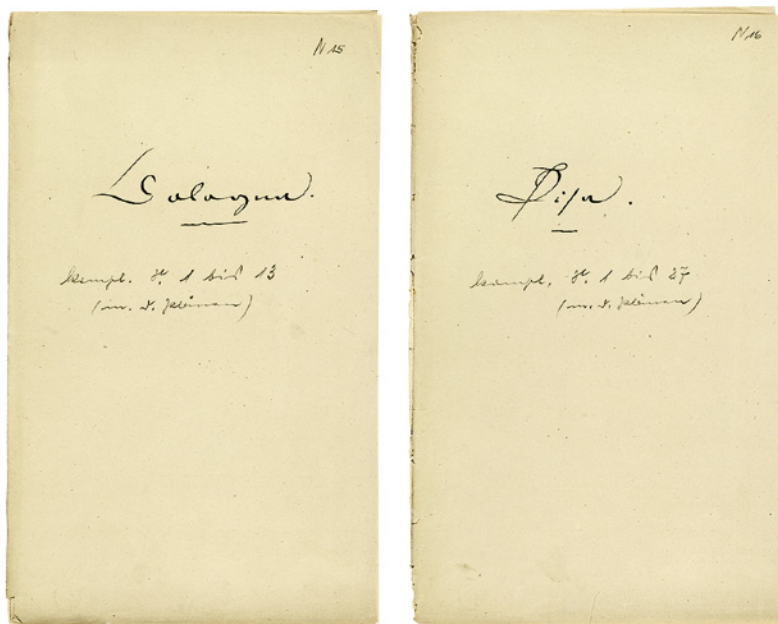 N 15
Bologna.
kompl. N. 1 bis 13
(m. d. kleinen)
N 16
Pisa.
kompl. N. 1 bis 27
(m. d. kleinen)